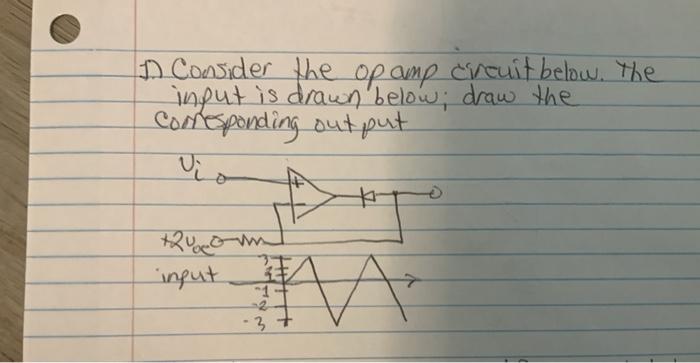 1) Consider the op amp circuit below. The
input is drawn below; draw the
corresponding output
Vi
+
-
+2VDC
3
input
-1
-2
-3